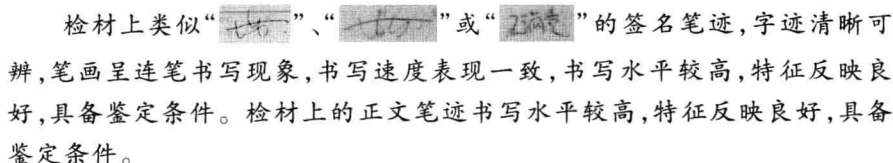 检材上类似“ ”、“ ”或“ ”的签名笔迹,字迹清晰可
辨,笔画呈连笔书写现象,书写速度表现一致,书写水平较高,特征反映良
好,具备鉴定条件。检材上的正文笔迹书写水平较高,特征反映良好,具备
鉴定条件。